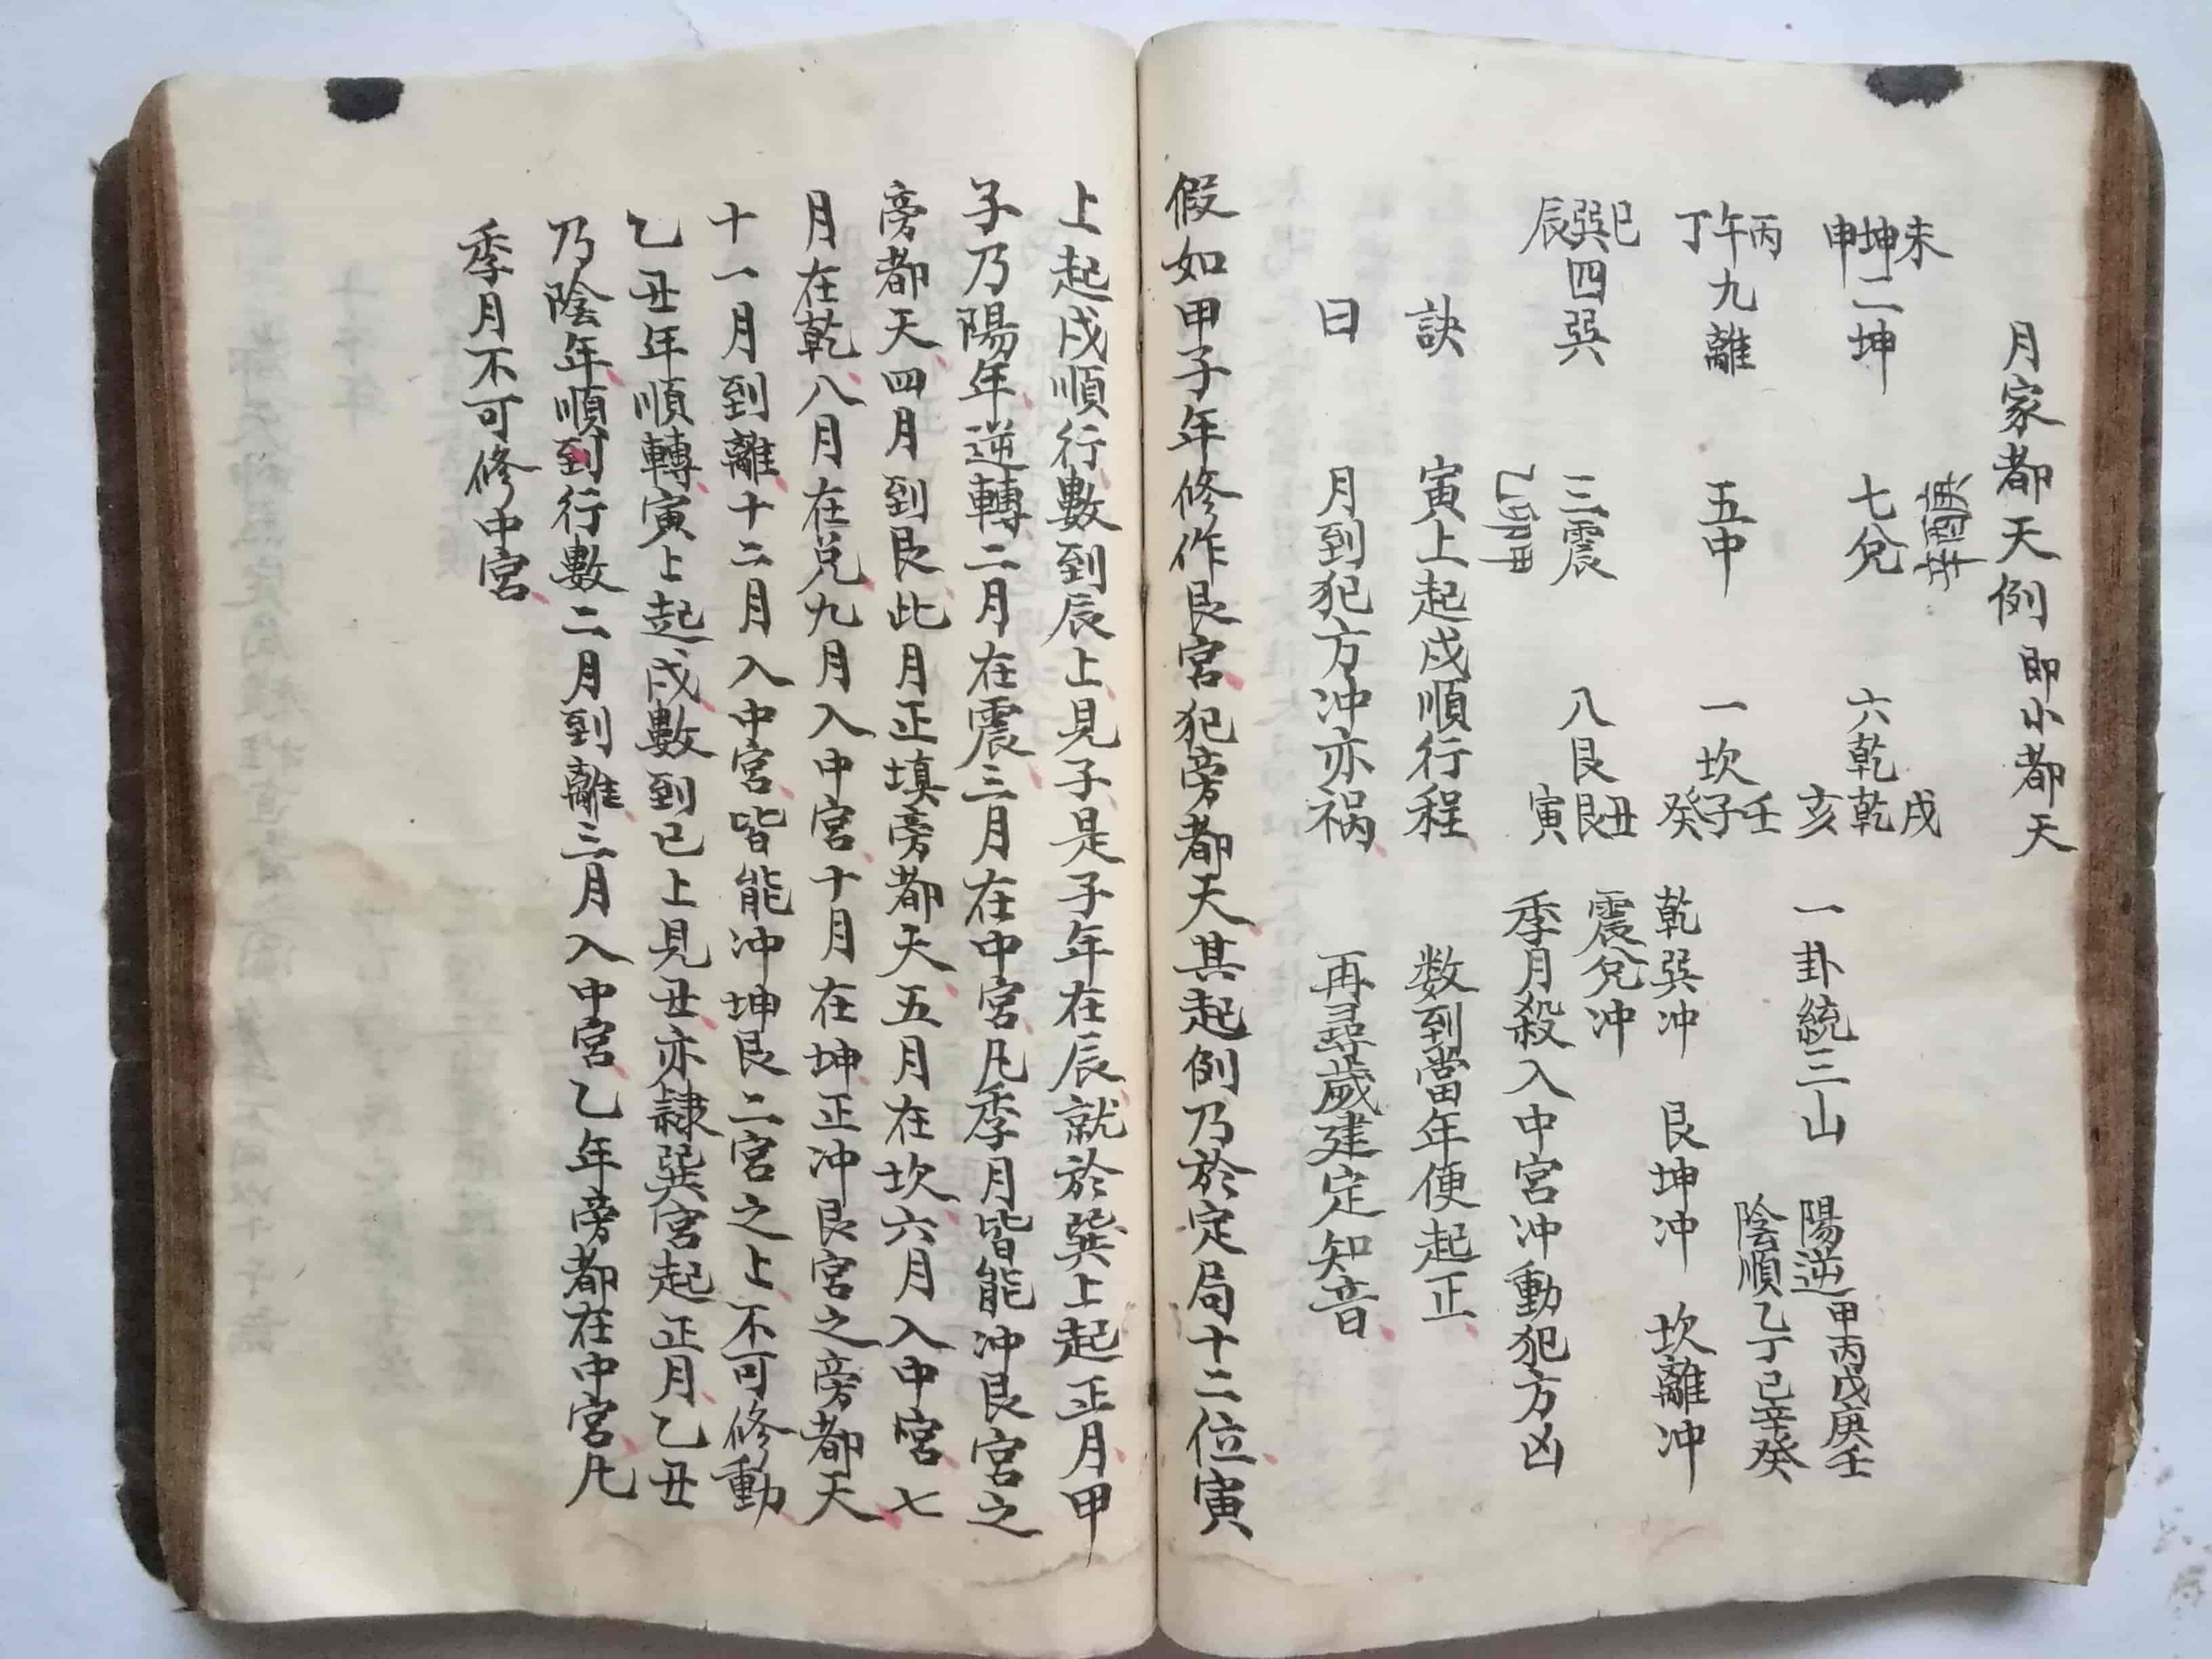 月家都天例 即小都天
未坤申二坤 七兌 六乾 戌乾亥
丙午丁九離 五中 一坎 壬子癸
巳巽辰四巽 三震 八艮 丑艮寅
一卦統三山 陽逆甲丙戊庚壬
陰順乙丁己辛癸
乾巽冲 艮坤冲 坎離冲
震兌冲
季月殺入中宮冲動犯方凶
訣 寅上起戌順行程 数到當年便起正
曰 月到犯方冲亦禍 再尋歲建定知音
假如甲子年修作艮宮犯旁都天其起例乃於定局十二位寅
上起戌順行數到辰上見子是子年在辰就於巽上起正月甲
子乃陽年逆轉二月在震三月在中宮凡季月皆能冲艮宮之
旁都天四月到艮此月正填旁都天五月在坎六月入中宮七
月在乾八月在兌九月入中宮十月在坤正冲艮宮之旁都天
十一月到離十二月入中宮皆能冲坤艮二宮之上不可修動
乙丑年順轉寅上起戌數到巳上見丑亦隷巽宮起正月乙丑
乃陰年順到行數二月到離三月入中宮乙年旁都在中宮凡
季月不可修中宮